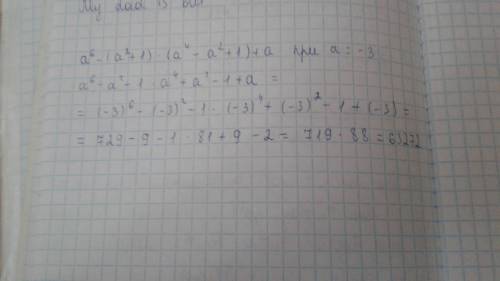 My dad is but
a⁶ - (a²+1) · (a⁴ - a² + 1) + a при a = -3
a⁶ - a² - 1 · a⁴ + a² - 1 + a =
= (-3)⁶ - (-3)² - 1 · (-3)⁴ + (-3)² - 1 + (-3) =
= 729 - 9 - 1 · 81 + 9 - 2 = 719 · 88 = 63272